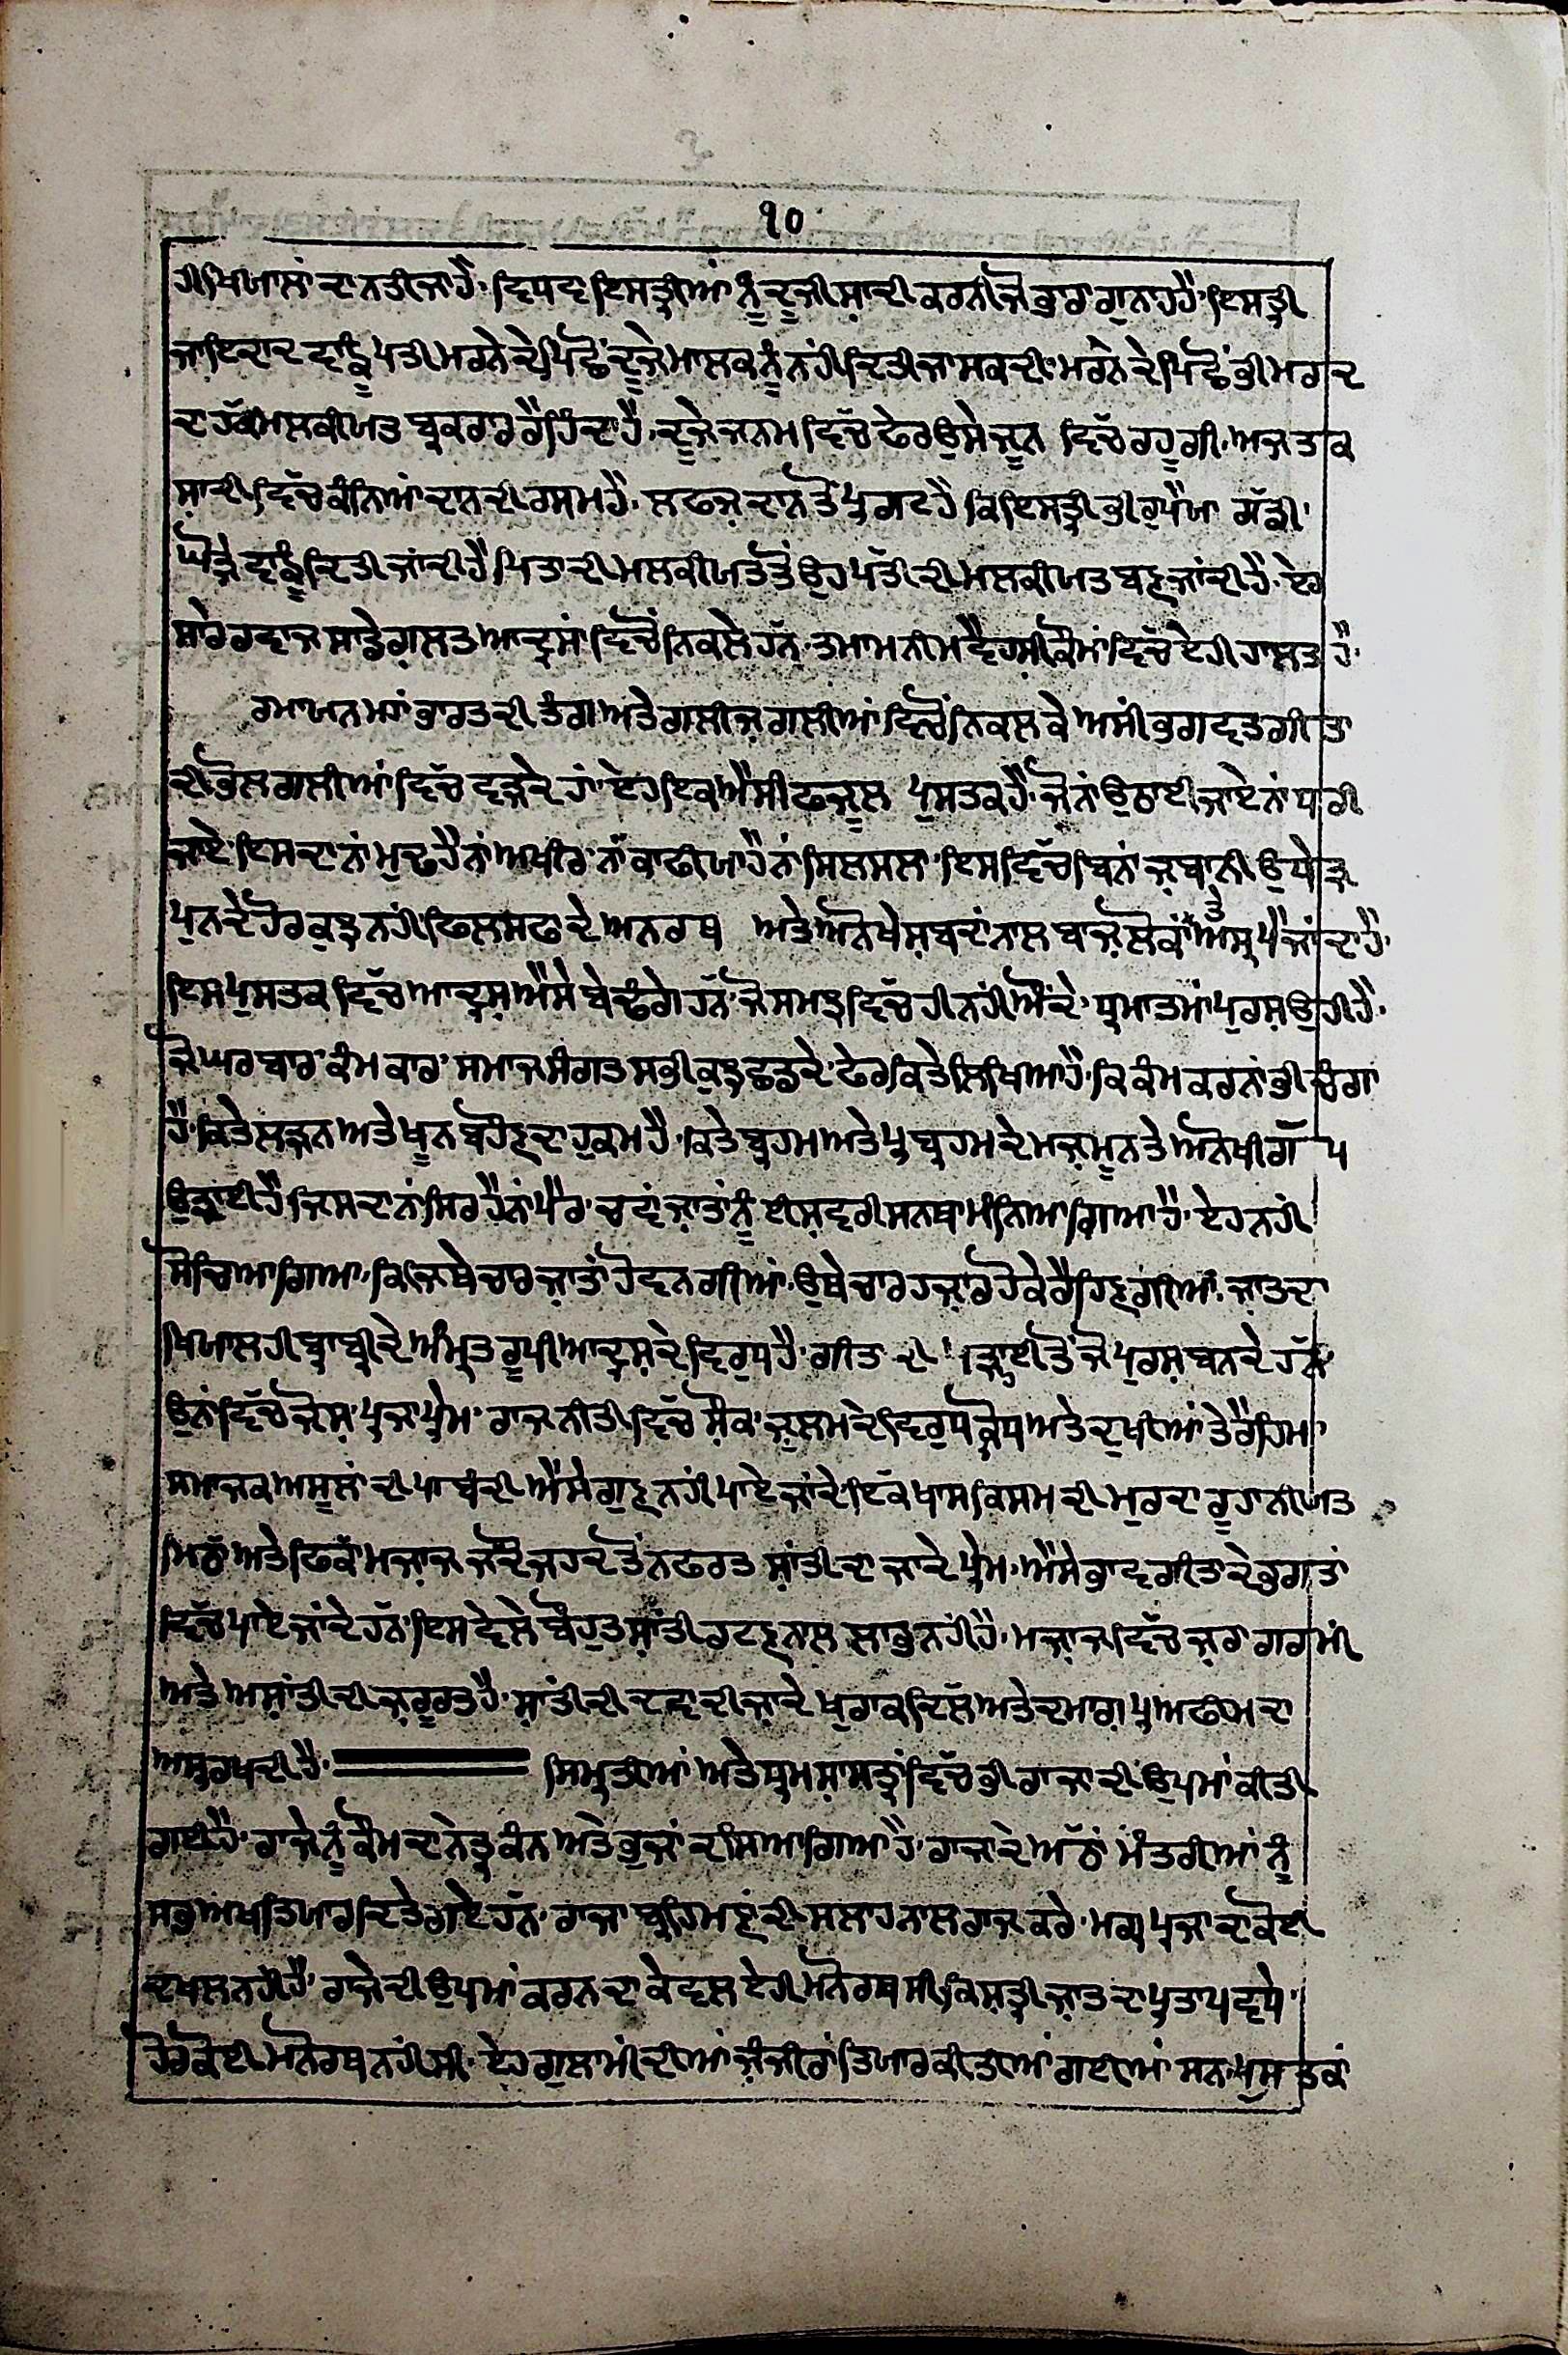 ੧੦
ਹੀ ਖਿਯਾਲਾਂ ਦਾ ਨਤੀਜਾ ਹੈ. ਵਿਧਵਾ ਇਸਤ੍ਰੀਆਂ ਨੂੰ ਦੂਜੀ ਸ਼ਾਦੀ ਕਰਨੀ ਜੋ ਭਾਰਾ ਗੁਨਾਹ ਹੈ. ਇਸਤ੍ਰੀ
ਜਾਇਦਾਦ ਵਾਂਙੂ ਪਤੀ ਮਰਨੇ ਦੇ ਪਿਛੋਂ ਦੂਜੇ ਮਾਲਕ ਨੂੰ ਨਹੀਂ ਦਿਤੀ ਜਾ ਸਕਦੀ. ਮਰਨੇ ਦੇ ਪਿਛੋਂ ਭੀ ਮਰਦ
ਦਾ ਹੱਕ ਮਲਕੀਯਤ ਬ੍ਰਕਰਾਰ ਰੈਹਿੰਦਾ ਹੈ. ਦੂਜੇ ਜਨਮ ਵਿੱਚ ਫੇਰ ਓੁਸੇ ਜੂਨ ਵਿੱਚ ਰਹੂਗੀ. ਅਜ ਤਕ
ਸ਼ਾਦੀ ਵਿੱਚ ਕੰਨਿਆਂ ਦਾਨ ਦੀ ਰਸਮ ਹੈ. ਲਫਜ਼ ਦਾਨ ਤੋਂ ਪ੍ਰਗਟ ਹੈ ਕਿ ਇਸਤ੍ਰੀ ਭੀ ਰੁਪੈਯਾ ਗੱਡੀ
ਘੋੜੇ ਵਾਂਙੂ ਦਿਤੀ ਜਾਂਦੀ ਹੈ ਪਿਤਾ ਦੀ ਮਲਕੀਯਤ ਤੋਂ ਓੁਹ ਪੱਤੀ ਦੀ ਮਲਕੀਯਤ ਬਣ ਜਾਂਦੀ ਹੈ. ਏਹ
ਸਾਰੇ ਰਵਾਜ ਸਾਡੇ ਗਲਤ ਆਦ੍ਰਸ਼ਾਂ ਵਿੱਚੋਂ ਨਿਕਲੇ ਹਨ. ਤਮਾਮ ਨੀਮ ਵੈਹਸ਼ੀ ਕੌਮਾਂ ਵਿੱਚ ਏਹੀ ਹਾਲਤ ਹੈ.
ਰਮਾਯਨ ਮਹਾਂ ਭਾਰਤ ਦੀ ਤੰਗ ਅਤੇ ਗਲੀਜ਼ ਗਲੀਆਂ ਵਿੱਚੋਂ ਨਿਕਲ ਕੇ ਅਸੀਂ ਭਗਵਤ ਗੀਤਾ
ਦੀ ਭੁੱਲ ਗਲੀਆਂ ਵਿੱਚ ਵੜਦੇ ਹਾਂ. ਏਹ ਇਕ ਐਸੀ ਫਜ਼ੂਲ ਪੁਸਤਕ ਹੈ. ਜੋ ਨਾਂ ਓੁਠਾਈ ਜਾਏ ਨਾਂ ਧਰੀ
ਜਾਏ. ਇਸਦਾ ਨਾਂ ਮੁਢ ਹੈ ਨਾਂ ਅਖੀਰ ਨਾਂ ਕਾਫੀਯਾ ਹੈ ਨਾਂ ਸਿਲਸਲਾ. ਇਸ ਵਿੱਚ ਬਿਨਾਂ ਜ਼ਬਾਨੀ ਓੁਧੇੜ
ਪੁਨ ਦੇ ਹੋਰ ਕੁਝ ਨਹੀਂ ਫਿਲਸਫੇ ਦੇ ਅਨਰਥ ਅਤੇ ਅਨੋਖੇ ਸ਼ਬਦਾਂ ਨਾਲ ਬਾਜ਼ੇ ਲੋਕਾਂ ਤੇ ਅਸ੍ਰ ਪੈ ਜਾਂਦਾ ਹੈ.
ਇਸ ਪੁਸਤਕ ਵਿੱਚ ਆਦ੍ਰਸ਼ ਐਸੇ ਬੇਢੰਗੇ ਹਨ. ਜੋ ਸਮਝ ਵਿੱਚ ਹੀ ਨਹੀਂ ਔਂਦੇ. ਧ੍ਰਮਾਤਮਾਂ ਪੁਰਸ਼ ਓੁਹੀ ਹੈ.
ਜੋ ਘਰ ਬਾਰ ਕੰਮ ਕਾਰ ਸਮਾਜ ਸੰਗਤ ਸਭੀ ਕੁਝ ਛਡਦੇ. ਫੇਰ ਕਿਤੇ ਲਿਖਿਆ ਹੈ. ਕਿ ਕੰਮ ਕਰਨਾਂ ਭੀ ਚੰਗਾ
ਹੈ. ਕਿਤੇ ਲੜਨ ਅਤੇ ਖੂਨ ਬੌਹਣ ਦਾ ਹੁਕਮ ਹੈ. ਕਿਤੇ ਬ੍ਰਹਮ ਅਤੇ ਪ੍ਰਬ੍ਰਹਮ ਦੇ ਮਜ਼ਮੂਨ ਤੇ ਅਨੋਖੀ ਗੱਪ
ਓੁੜਾਈ ਹੈ ਜਿਸਦਾ ਨਾਂ ਸਿਰ ਹੈ ਨਾਂ ਪੈਰ. ਚਵਾਂ ਜ਼ਾਤਾਂ ਨੂੰ ਈਸ਼ਵਰੀ ਸਨਬਾ ਮੰਨਿਆ ਗਿਆ ਹੈ. ਏਹ ਨਹੀਂ
ਸੋਚਿਆ ਗਿਆ. ਕਿ ਜਿਥੇ ਚਾਰ ਜ਼ਾਤਾਂ ਹੋਵਨਗੀਆਂ. ਓੁਥੇ ਚਾਰ ਹਜ਼ਾਰ ਹੋਕੇ ਰੈਹਿਣਗੀਆਂ. ਜ਼ਾਤ ਦਾ
ਖਿਯਾਲ ਹੀ ਬ੍ਰਾਬ੍ਰੀ ਦੇ ਅੰਮ੍ਰਤ ਰੂਪੀ ਆਦ੍ਰਸ਼ ਦੇ ਵਿਰੁਧ ਹੈ. ਗੀਤਾ ਦੀ ੜ੍ਹਾਈ ਤੋਂ ਜੋ ਪੁਰਸ਼ ਬਨਦੇ ਹਨ
ਓੁਨਾਂ ਵਿੱਚ ਜੋਸ਼ ਪ੍ਰਜਾ ਪ੍ਰੇਮ ਰਾਜ ਨੀਤੀ ਵਿੱਚ ਸ਼ੌਕ. ਜ਼ੁਲਮ ਦੇ ਵਿਰੁਧ ਕ੍ਰੋਧ ਅਤੇ ਦੁਖੀਆਂ ਤੇ ਰੈਹਿਮ
ਸਮਾਜਕ ਅਸੂਲਾਂ ਦੀ ਪਾਬੰਦੀ ਐਸੇ ਗੁਣ ਨਹੀਂ ਪਾਏ ਜਾਂਦੇ. ਇਕ ਖਾਸ ਕਿਸਮ ਦੀ ਮੁਰਦਾ ਰੂਹਾਨੀਯਤ
ਮਿਠਾ ਅਤੇ ਫਿਕਾ ਮਜ਼ਾਜ ਜਦੋ ਜਹਦ ਤੋਂ ਨਫਰਤ ਸ਼ਾਂਤੀ ਦਾ ਜਾਦੇ ਪ੍ਰੇਮ. ਐਸੇ ਭਾਵ ਗੀਤਾ ਦੇ ਭਗਤਾਂ
ਵਿੱਚ ਪਾਏ ਜਾਂਦੇ ਹਨ. ਇਸ ਵੇਲੇ ਬੌਹੁਤ ਸ਼ਾਂਤੀ ਰਟਣ ਨਾਲ ਲਾਭ ਨਹੀਂ ਹੈ. ਮਜ਼ਾਜ ਵਿੱਚ ਜ਼ਰਾ ਗਰਮੀਂ
ਅਤੇ ਅਸ਼ਾਂਤੀ ਦੀ ਜ਼ਰੂਰਤ ਹੈ. ਸ਼ਾਂਤੀ ਦੀ ਦਵਾਦੀ ਜ਼ਾਦੇ ਖੁਰਾਕ ਦਿਲ ਅਤੇ ਦਮਾਗ਼ ਪ੍ਰ ਅਫੀਮ ਦਾ
ਅਸ੍ਰ ਰਖਦੀ ਹੈ. ਸਿਮ੍ਰਤੀਆਂ ਅਤੇ ਧ੍ਰਮ ਸ਼ਾਸਤ੍ਰਾਂ ਵਿੱਚ ਭੀ ਰਾਜਾ ਦੀ ਓੁਪਮਾਂ ਕੀਤੀ
ਗਈ ਹੈ. ਰਾਜੇ ਨੂੰ ਕੌਮ ਦਾ ਨੇਤ੍ਰ ਕੰਨ ਅਤੇ ਭੁਜਾਂ ਦਸਿਆ ਗਿਆ ਹੈ. ਰਾਜਾ ਦੇ ਅੱਠਾਂ ਮੰਤਰੀਆਂ ਨੂੰ
ਸਭ ਅਖਤਿਯਾਰ ਦਿਤੇ ਗਏ ਹਨ. ਰਾਜਾ ਬ੍ਰਹਿਮਣਾਂ ਦੀ ਸਲਾਹ ਨਾਲ ਰਾਜ ਕਰੇ. ਮਗ੍ਰ ਪ੍ਰਜਾ ਦਾ ਕੋਈ
ਦਖਲ ਨਹੀਂ ਹੈ. ਰਾਜੇ ਦੀ ਓੁਪਮਾਂ ਕਰਨ ਦਾ ਕੇਵਲ ਏਹੀ ਮਨੋਰਥ ਸੀ. ਕਿ ਸ਼ਤ੍ਰੀ ਜ਼ਾਤ ਦਾ ਪ੍ਰਤਾਪ ਵਧੇ.
ਹੋਰ ਕੋਈ ਮਨੋਰਥ ਨਹੀਂ ਸੀ. ਏਹ ਗੁਲਾਮੀਂ ਦੀਆਂ ਜ਼ੰਜੀਰਾਂ ਤਿਯਾਰ ਕੀਤੀਆਂ ਗਈਆਂ ਸਨ. ਪੁਸਤਕਾਂ